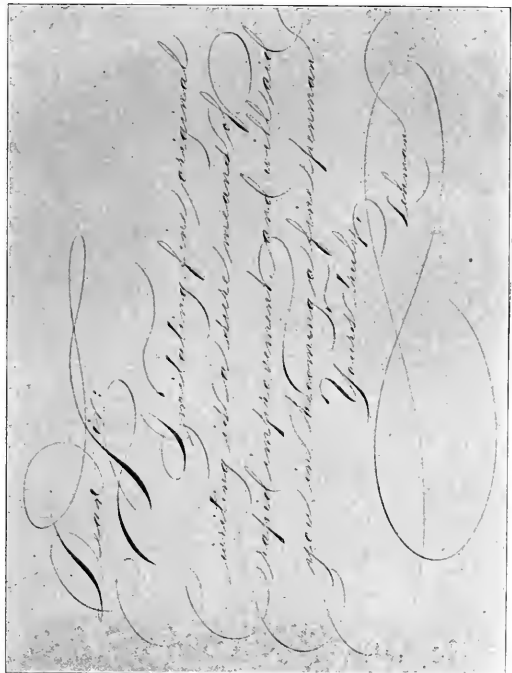 Dear Sir:
Imitating fine original
writing is a sure means of
rapid improvement, and will aid
you in becoming a fine penman.
Yours truly,
Lehman